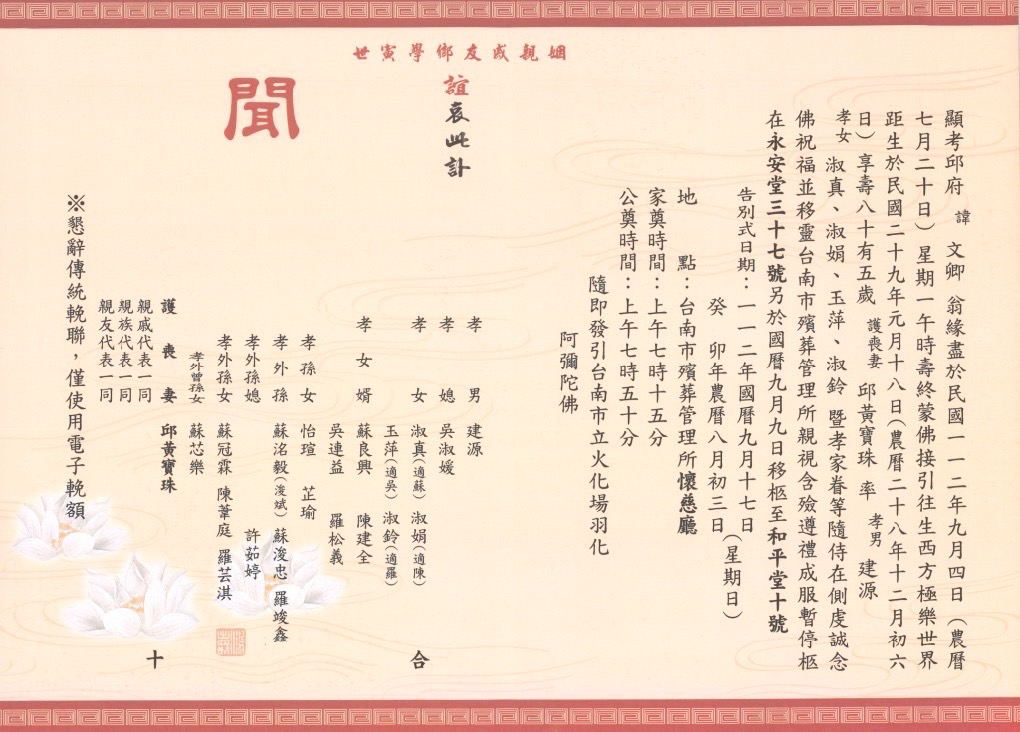 顯考邱府 諱 文卿 翁緣盡於民國一一二年九月四日(農曆
七月二十日)星期一午時壽終蒙佛接引往生西方極樂世界
距生於民國二十九年元月十八日(農曆二十八年十二月初六
日)享壽八十有五歲 護喪妻 邱黃寶珠 率 孝男 建源
孝女 淑真、淑娟、玉萍、淑鈴 暨孝家眷等隨侍在側虔誠念
佛祝福並移靈台南市殯葬管理所親視含殮遵禮成服暫停柩
在永安堂三十七號另於國曆九月九日移柩至和平堂十號
告別式日期:一一二年國曆九月十七日(星期日)
癸 卯年農曆八月初三日
地 點:台南市殯葬管理所懷慈廳
家奠時間:上午七時十五分
公奠時間:上午七時五十分
隨即發引台南市立火化場羽化
阿彌陀佛
姻親戚友鄉學寅世
誼哀此訃
聞
孝 男 建源
孝 媳 吳淑媛
孝 女 淑真(適蘇) 淑娟(適陳)
玉萍(適吳) 淑鈴(適羅)
孝 女 婿 蘇良興 陳建全
吳連益 羅松義
孝 孫 女 怡瑄 芷瑜
孝 外 孫 蘇洺毅(浚斌) 蘇浚忠 羅竣鑫
孝外孫媳 許茹婷
孝外孫女 蘇冠霖 陳葦庭 羅芸淇
孝外曾孫女 蘇芯樂
護 喪 妻 邱黃寶珠
親戚代表一同
親族代表一同
親友代表一同
合 十
※懇辭傳統輓聯,僅使用電子輓額